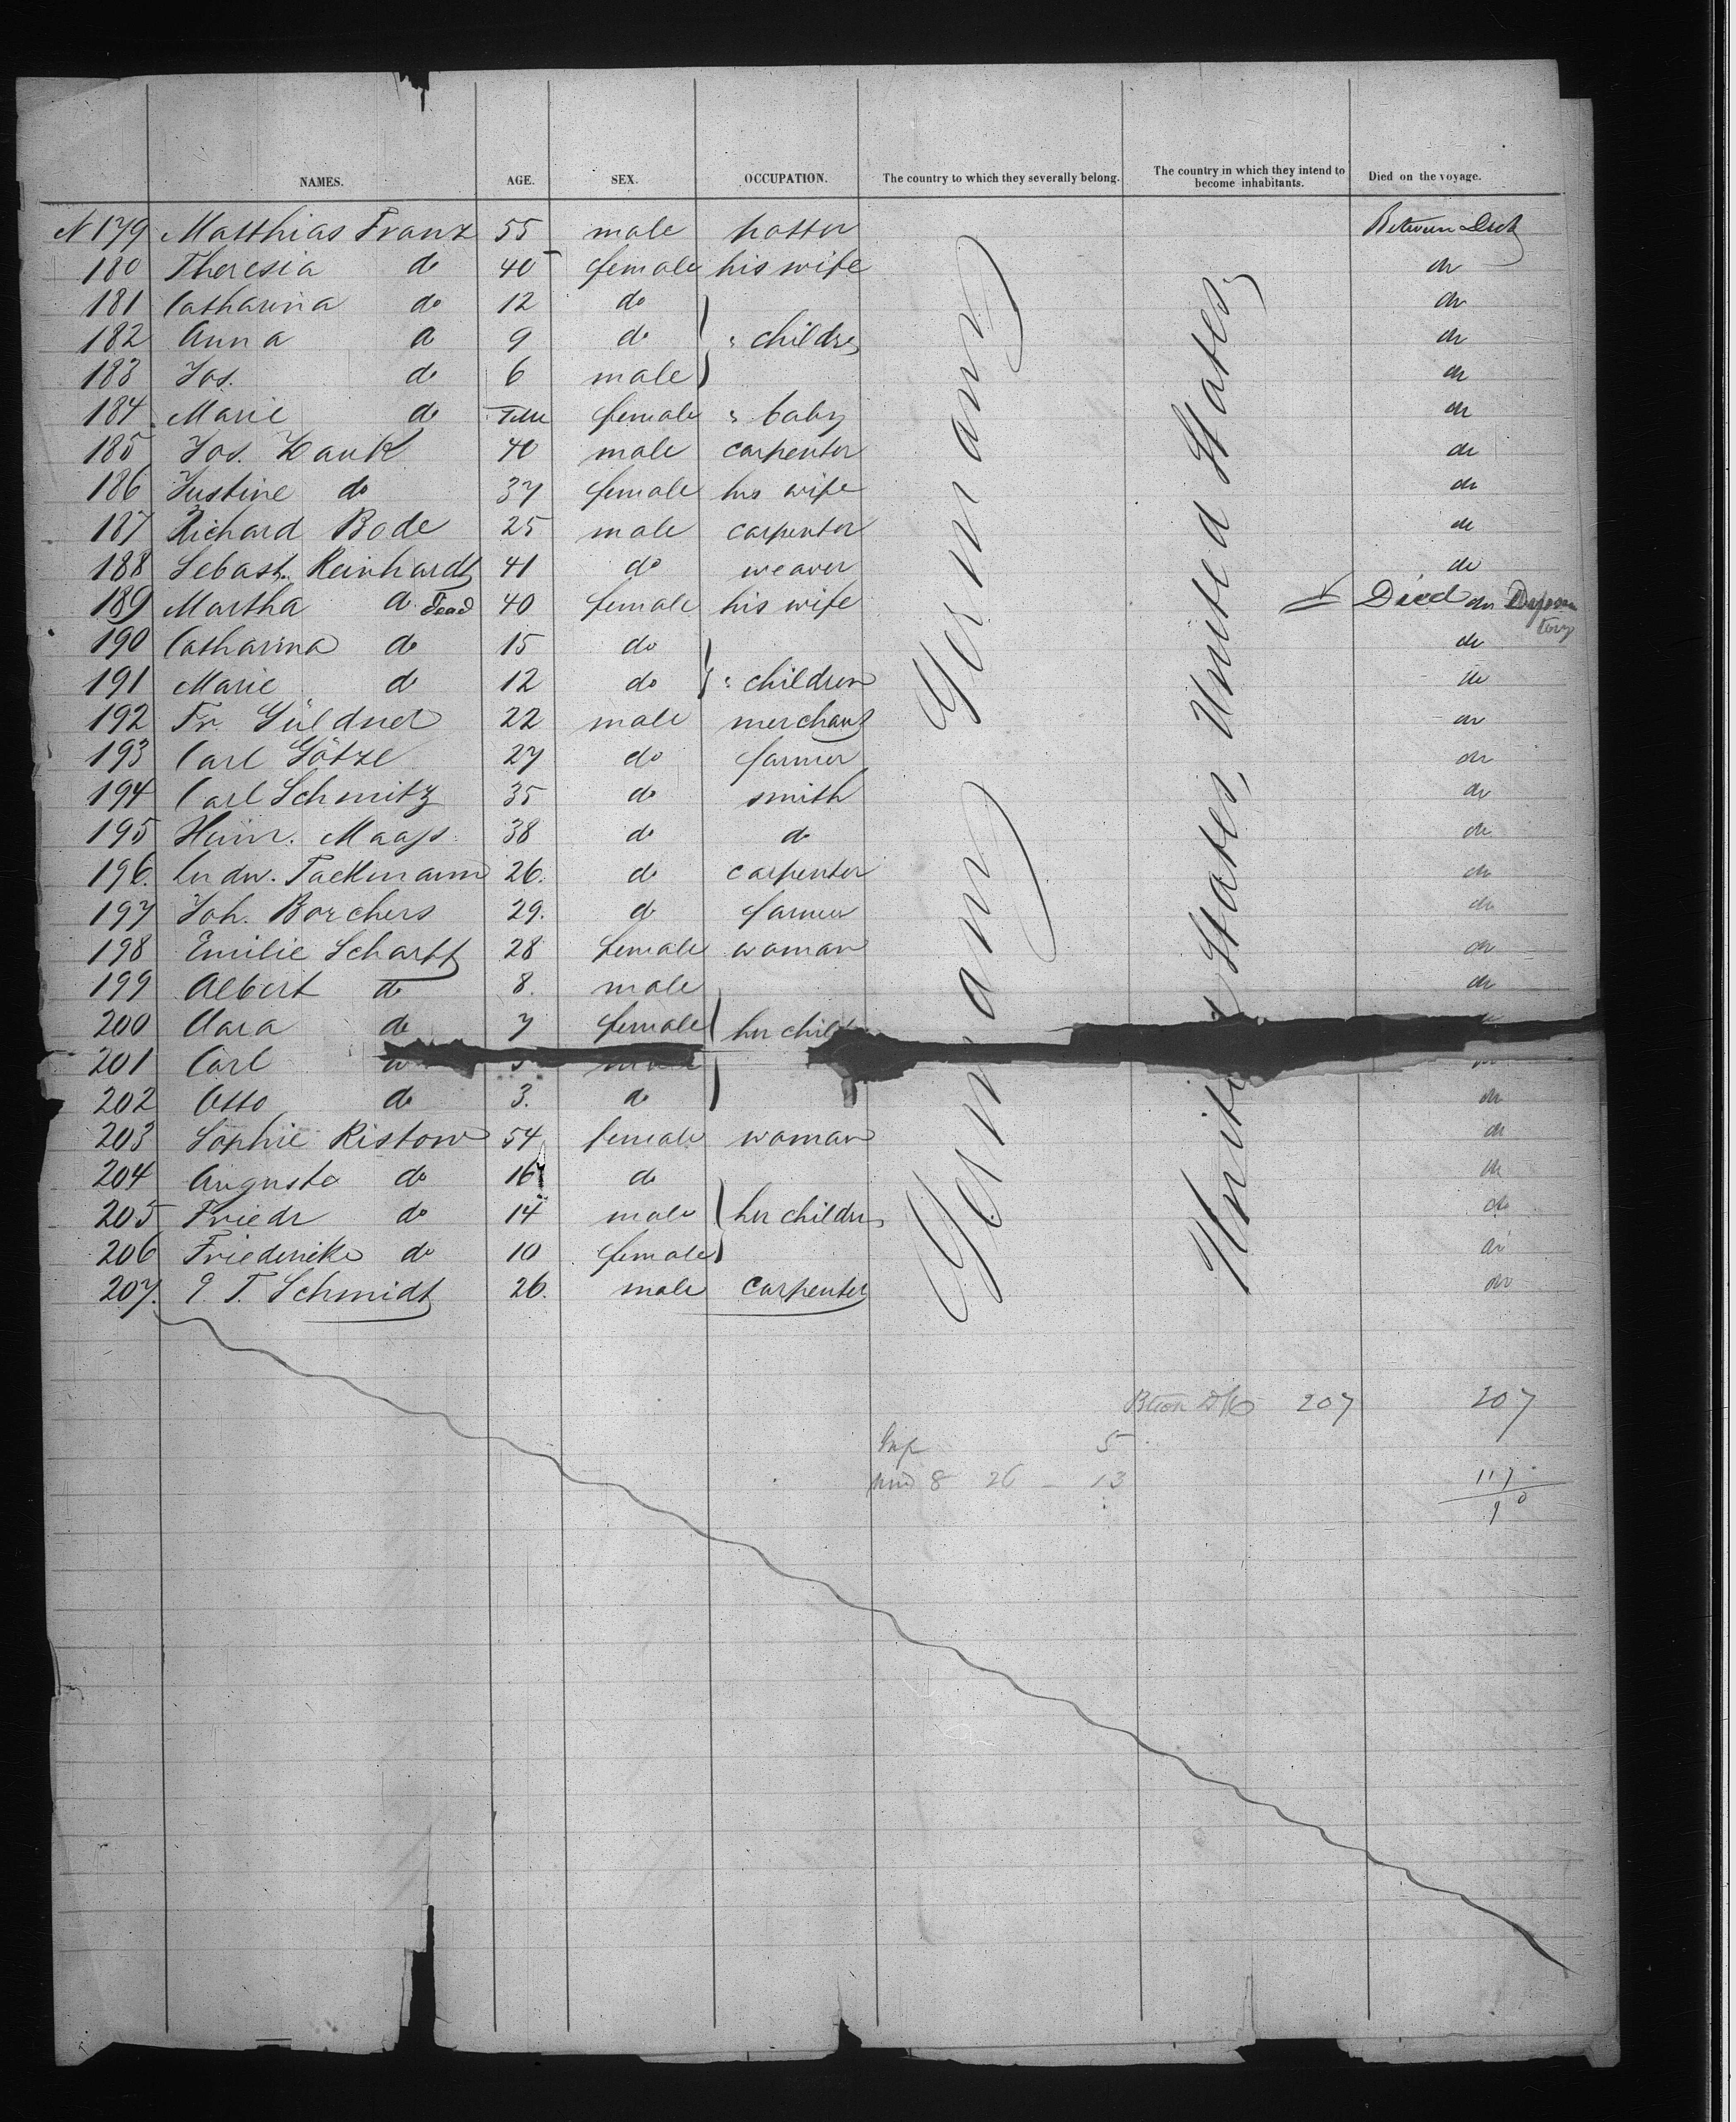 NAMES. AGE. SEX. OCCUPATION. The country to which they severally belong. The country in which they intend to become inhabitants. Died on the voyage.
N 179 Matthias Franz 55 male hatter Between Deck
180 Theresia do 40 female his wife do
181 Catharina do 12 do do
182 Anna do 9 do " children do
183 Jos. do 6 male do
184 Marie do female " baby do
185 Jos. Hauk 40 male carpenter do
186 Justine do 37 female his wife do
187 Richard Bode 25 male carpenter do
188 Sebast. Reinhardt 41 do weaver do
189 Martha do Dead 40 female his wife Died
190 Catharina do 15 do do
191 Marie do 12 do " children do
192 Fr. Güldner 22 male merchant do
193 Carl Götze 27 do farmer do
194 Carl Schmitz 35 do smith do
195 Heinr. Maass 38 do do do
196. Ludw. Tackmann 26. do carpenter do
197 Joh. Borchers 29. do farmer do
198 Emilie Scharff 28 female woman do
199 Albert do 8. male do
200 Clara do 7 female her do
201 Carl do do
202 Otto do 3. do do
203 Sophie Ristow 54 female woman do
204 Auguste do 16 do do
205 Friedr do 14 male her children do
206 Friederike do 10 female do
207. T. Schmidt 26. male carpenter do
Germany Germany
United States, United States,
207 207
5
8 26 – 13
117
90